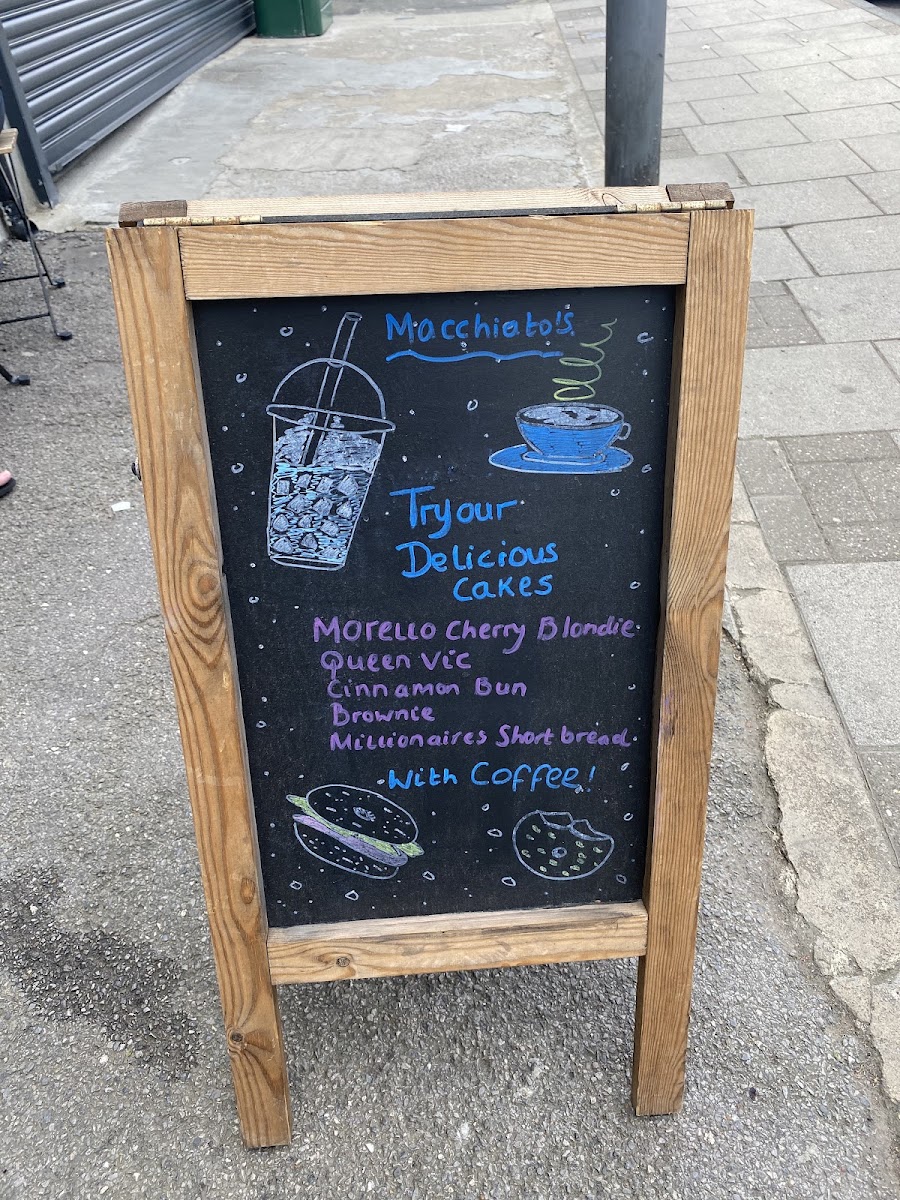 Macchiato's
Try our
Delicious
Cakes
Morello Cherry Blondie
Queen Vic
Cinnamon Bun
Brownie
Millionaires Shortbread
With Coffee!